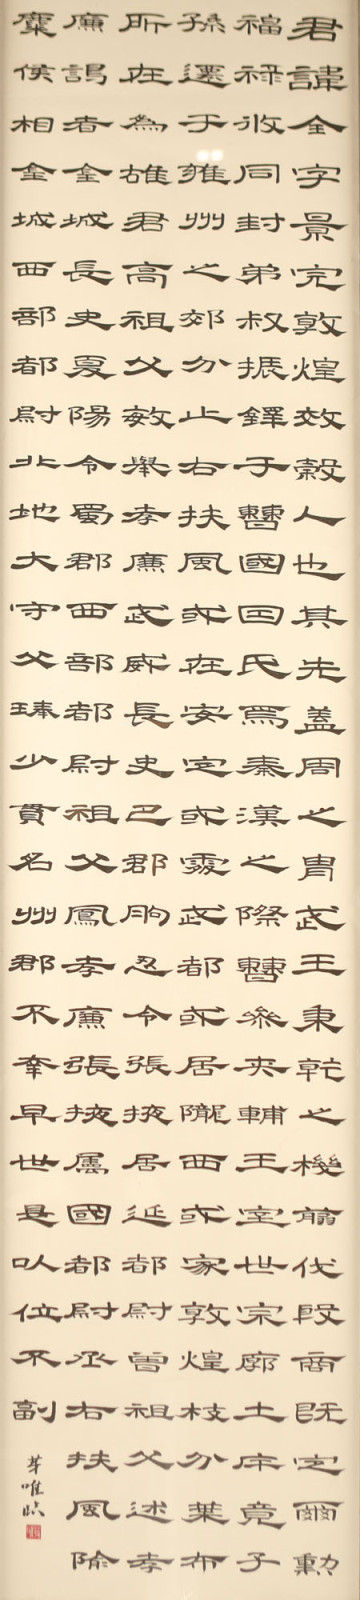 君諱全字景完敦煌效穀人也其先蓋周之胄武王秉乾之機翦伐殷商既定爾勳
福祿攸同封弟叔振鐸于曹國因氏焉秦漢之際曹參夾輔王室世宗廓土斥竟子
孫遷于雍州之郊分止右扶風或在安定或處武都或居隴西或家敦煌枝分葉布
所在為雄君高祖父敏舉孝廉武威長史巴郡朐忍令張掖居延都尉曾祖父述孝
廉謁者金城長史夏陽令蜀郡西部都尉祖父鳳孝廉張掖屬國都尉丞右扶風隃
麋侯相金城西部都尉北地大守父琫少貫名州郡不幸早世是以位不副
唯臨